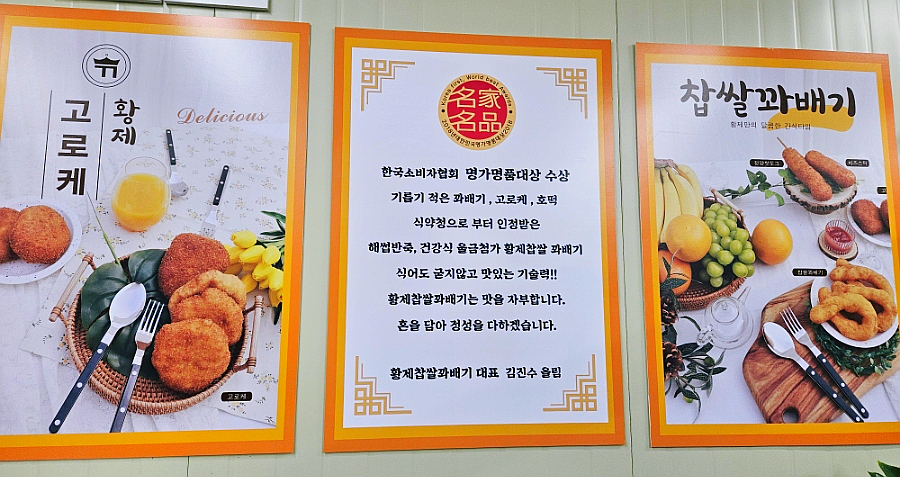 황제
고로케
Delicious
고로케
Korea first, World best Awards
名家
名品
한국소비자협회 명가명품대상 수상
기름기 적은 꽈배기 , 고로케 , 호떡
식약청으로 부터 인정받은
해썹반죽, 건강식 울금첨가 황제찹쌀 꽈배기
식어도 굳지않고 맛있는 기술력!!
황제찹쌀꽈배기는 맛을 자부합니다.
혼을 담아 정성을 다하겠습니다.
황제찹쌀꽈배기 대표 김진수 올림
찹쌀꽈배기
황제만의 달콤한 간식타임
찹쌀꽈배기